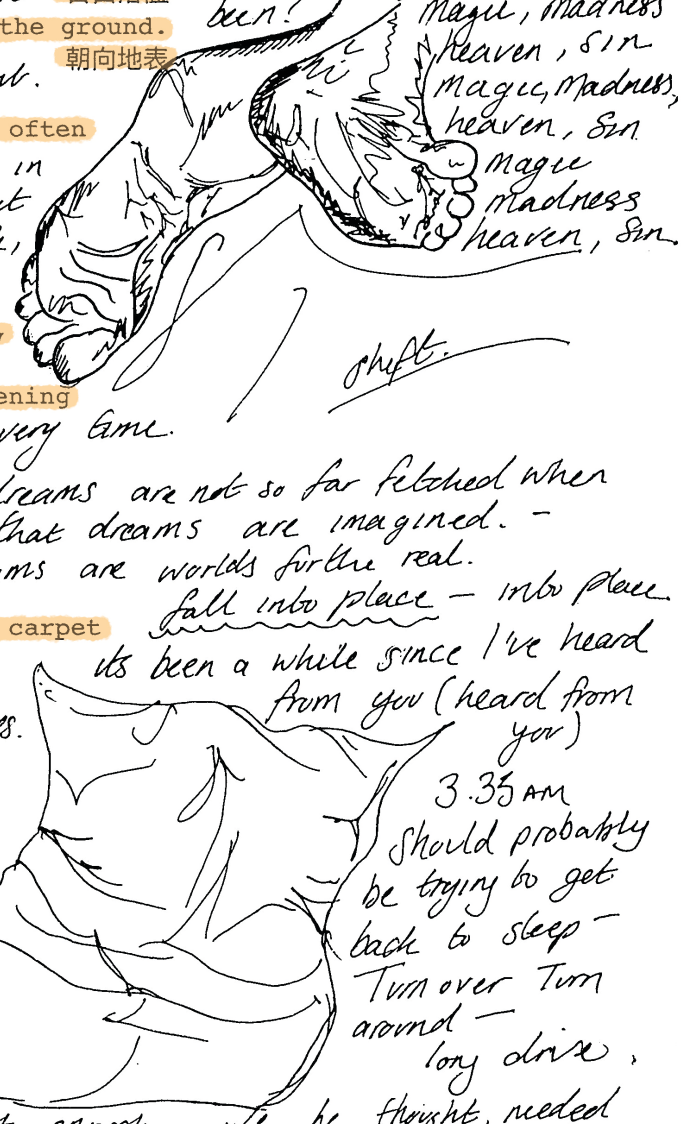 been?
magic, madness
the ground.
heaven, sin
朝向地表
magic, madness,
often
heaven, sin
in
magic
madness
heaven, sin.
shift.
ening
very time.
dreams are not so far fetched when
that dreams are imagined. -
ms are worlds for the real.
fall into place - into place.
carpet
its been a while since I've heard
from you (heard from
you)
es.
3.35 AM
Should probably
be trying to get
back to sleep -
Turn over Turn
around -
long drive.
be thought, needed